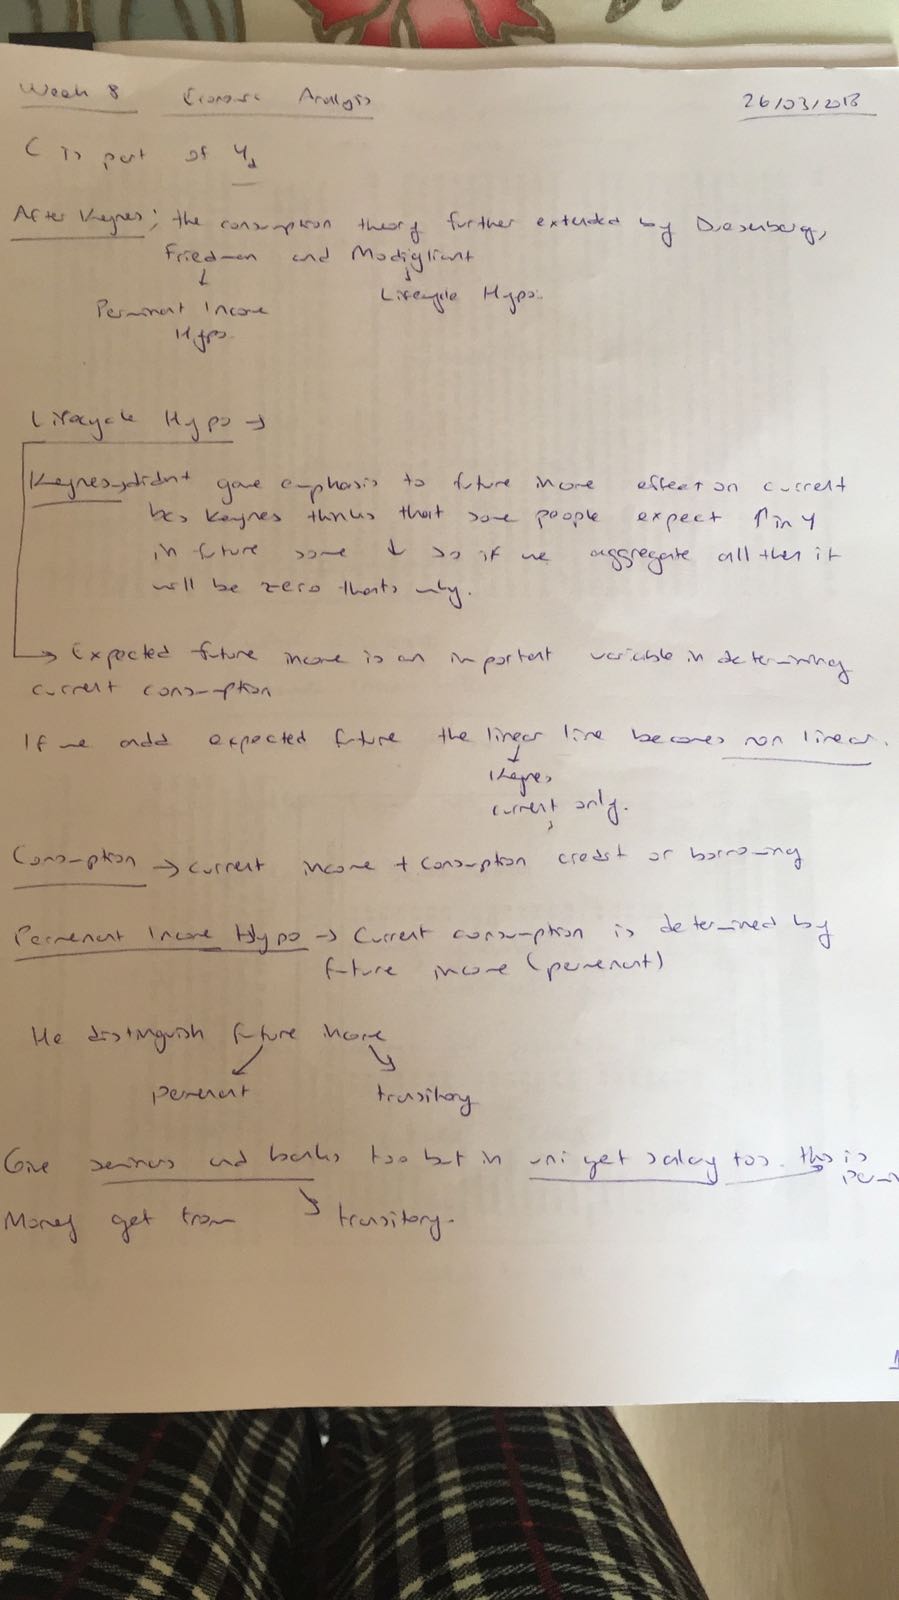 Week 8 Economic Analysis 26/03/2018
C is part of Yd
After Keynes; the consumption theory further extended by Duesenberg,
Friedman and Modigliani
Lifecycle Hypo.
Permanent Income
Hypo.
Lifecycle Hypo →
Keynes → didnt gave emphasis to future income effect on current
bcs Keynes thinks that some people expect ↑ in Y
in future some ↓ so if we aggregate all then it
will be zero thats why.
→ Expected future income is an important variable in determining
current consumption
If we add expected future the linear line becomes non linear.
Keynes
current only.
Consumption → current income + consumption credit or borrowing
Permenent Income Hypo → Current consumption is determined by
future income (permenent)
He distinguish future income
permenent transitory
Give seminars and banks too but in uni get salary too. this is
Money get from transitory.